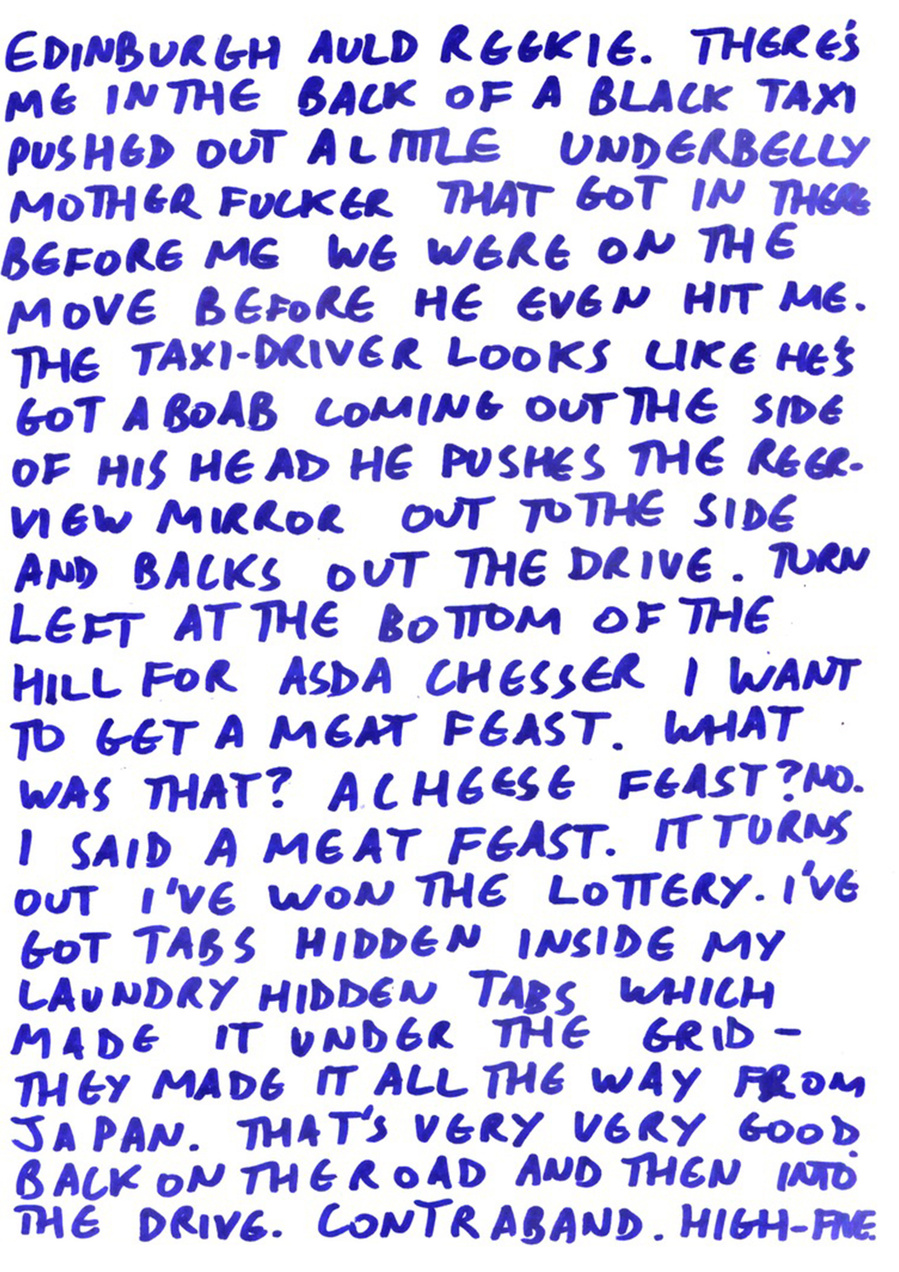 EDINBURGH AULD REEKIE. THERE'S
ME IN THE BACK OF A BLACK TAXI
PUSHED OUT A LITTLE UNDERBELLY
MOTHER FUCKER THAT GOT IN THERE
BEFORE ME WE WERE ON THE
MOVE BEFORE HE EVEN HIT ME.
THE TAXI-DRIVER LOOKS LIKE HE'S
GOT A BOAB COMING OUT THE SIDE
OF HIS HEAD HE PUSHES THE REER-
VIEW MIRROR OUT TO THE SIDE
AND BACKS OUT THE DRIVE. TURN
LEFT AT THE BOTTOM OF THE
HILL FOR ASDA CHESSER I WANT
TO GET A MEAT FEAST. WHAT
WAS THAT? A CHEESE FEAST? NO.
I SAID A MEAT FEAST. IT TURNS
OUT I'VE WON THE LOTTERY. I'VE
GOT TABS HIDDEN INSIDE MY
LAUNDRY HIDDEN TABS WHICH
MADE IT UNDER THE GRID -
THEY MADE IT ALL THE WAY FROM
JAPAN. THAT'S VERY VERY GOOD.
BACK ON THE ROAD AND THEN INTO
THE DRIVE. CONTRABAND. HIGH-FIVE.